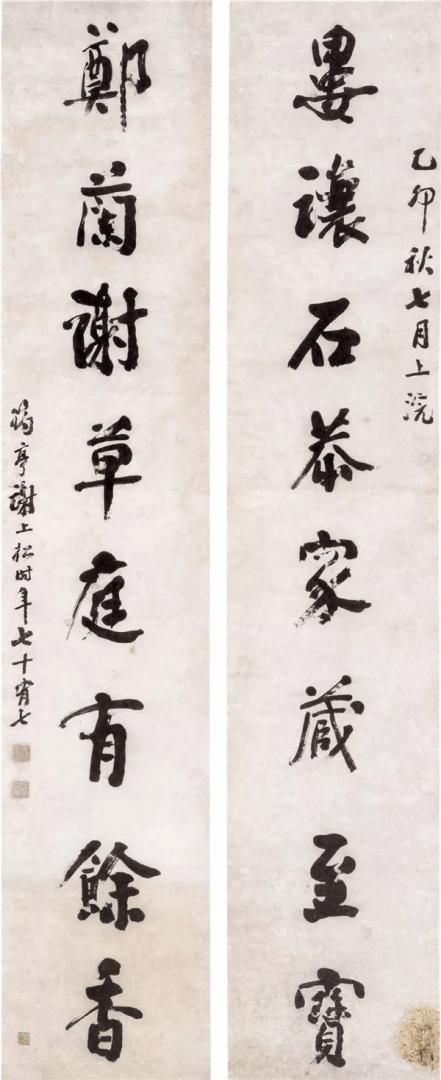 乙卯秋七月上浣
婁讓石恭家藏至寶
鄭蘭謝草庭有餘香
筠亭謝上松时年七十有七